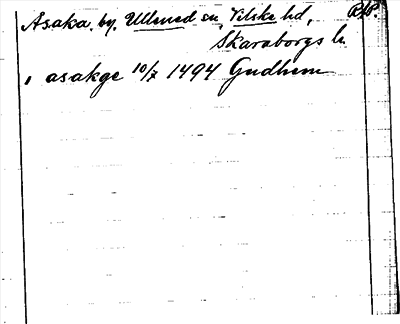 Asaka, by, Ullened sn, Vilske hd,
Skaraborgs l.
i asakge 10/7 1494 Gudhem